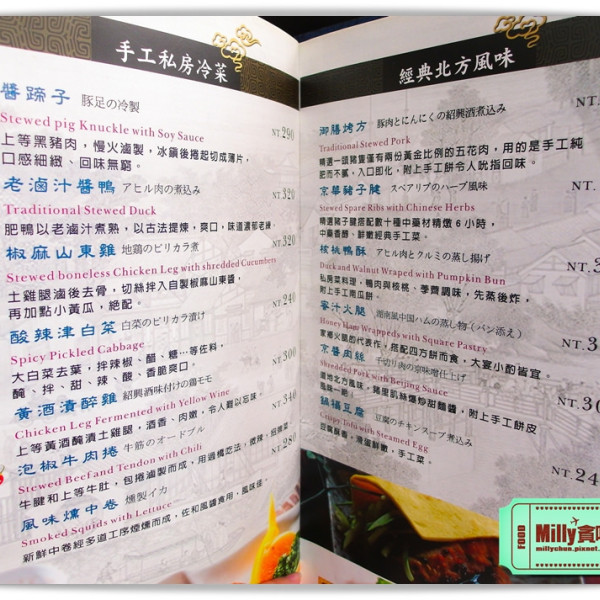 手工私房冷菜
醬蹄子 豚足の冷製
Stewed pig Knuckle with Soy Sauce NT.290
上等黑豬肉，慢火滷製，冰鎮後捲起切成薄片，
口感細緻、回味無窮。
老滷汁醬鴨 アヒル肉の煮込み NT.320
Traditional Stewed Duck
肥鴨以老滷汁煮熟，以古法提煉，爽口，味道濃郁老練。
椒麻山東雞 地鶏のピリカラ煮 NT.320
Stewed boneless Chicken Leg with shredded Cucumbers
土雞腿滷後去骨，切絲拌入自製椒麻山東醬，
再加點小黃瓜，絕配。
酸辣津白菜 白菜のピリカラ漬け NT.240
Spicy Pickled Cabbage
大白菜去葉，拌辣椒、醋、糖…等佐料，
醃、拌、甜、辣、酸、香脆爽口。
黃酒漬醉雞 紹興酒味付けの鶏モモ NT.300
Chicken Leg Fermented with Yellow Wine
上等黃酒醃漬土雞腿，酒香、肉嫩，令人難以忘味。
泡椒牛肉捲 牛筋のオードブル NT.340
Stewed Beef and Tendon with Chili
牛腱和上等牛肚，包捲滷製而成，用過橋吃法，微辣，
風味燻中卷 燻製イカ NT.280
Smoked Squids with Lettuce
新鮮中卷經多道工序煙燻而成，佐和風醬食用，風味佳。
經典北方風味
御膳烤方 豚肉とにんにくの紹興酒煮込み NT.
Traditional Stewed Pork
精選一頭豬隻僅有兩份黃金比例的五花肉，用的是手工純
肥而不膩，入口即化，附上手工餅令人吮指回味。
京華豬子腱 スペアリブのハーブ風味 NT.
Stewed Spare Ribs with Chinese Herbs
精選豬子腱搭配數十種中藥材精燉6小時，
中藥香醇、鮮嫩經典手工菜。
核桃鴨酥 アヒル肉とクルミの蒸し揚げ NT.3
Duck and Walnut Wraped with Pumpkin Bun
私房菜料理，鴨肉與核桃、季薺調味，先蒸後炸，
附上手工南瓜餅。
蜜汁火腿 湖南風中国ハムの蒸し物（パン添え） NT.3
Honey Ham Wrappeds with Square Pastry
家鄉火腿酌代表作，搭配四方餅而食，大宴小酌皆宜。
京醬肉絲 千切り肉の京味噌仕上げ NT.3
Shredded Pork with Beijing Sauce
道地北方風味，豬里肌絲爆炒甜麵醬，附上手工餅皮
鍋塌豆腐 豆腐のチキンスープ煮込み NT.30
Crispy Tofu with Steamed Egg
豆腐酥香，滑蛋鮮嫩，手工菜。
NT.24
FOOD
Milly貪吃
millychun.pixnet.